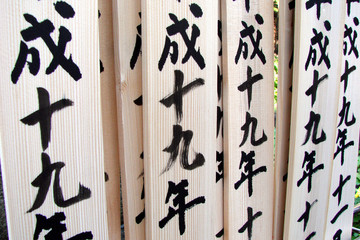 成十九年
成十九年
成十九年十
十九年十
年十一